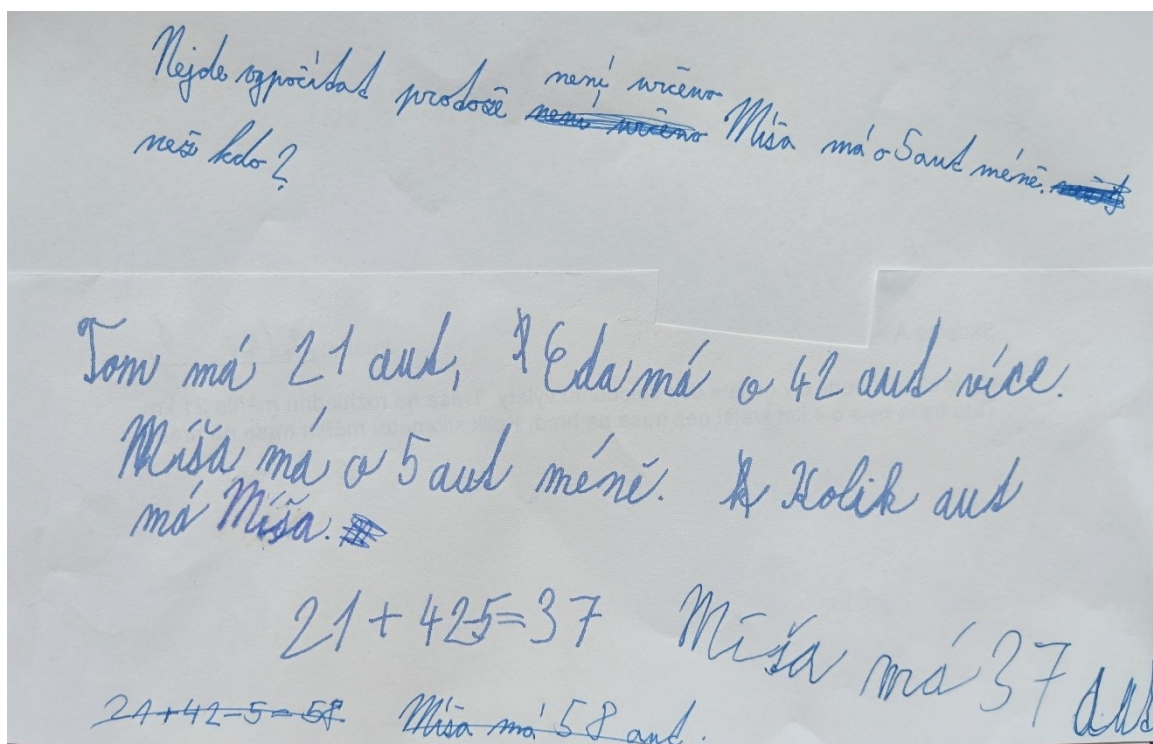 Nejde vypočítat protože není určeno Míša má o 5 aut méně.
než kdo?
Tom má 21 aut, Eda má o 42 aut více.
Míša ma o 5 aut méně. Kolik aut
má Míša.
21 + 42-5 = 37 Míša má 37 aut
21+42-5=58 Míša má 58 aut.